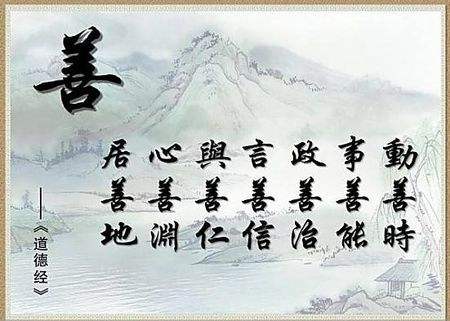 善
居善地
心善淵
與善仁
言善信
政善治
事善能
動善時
——《道德经》